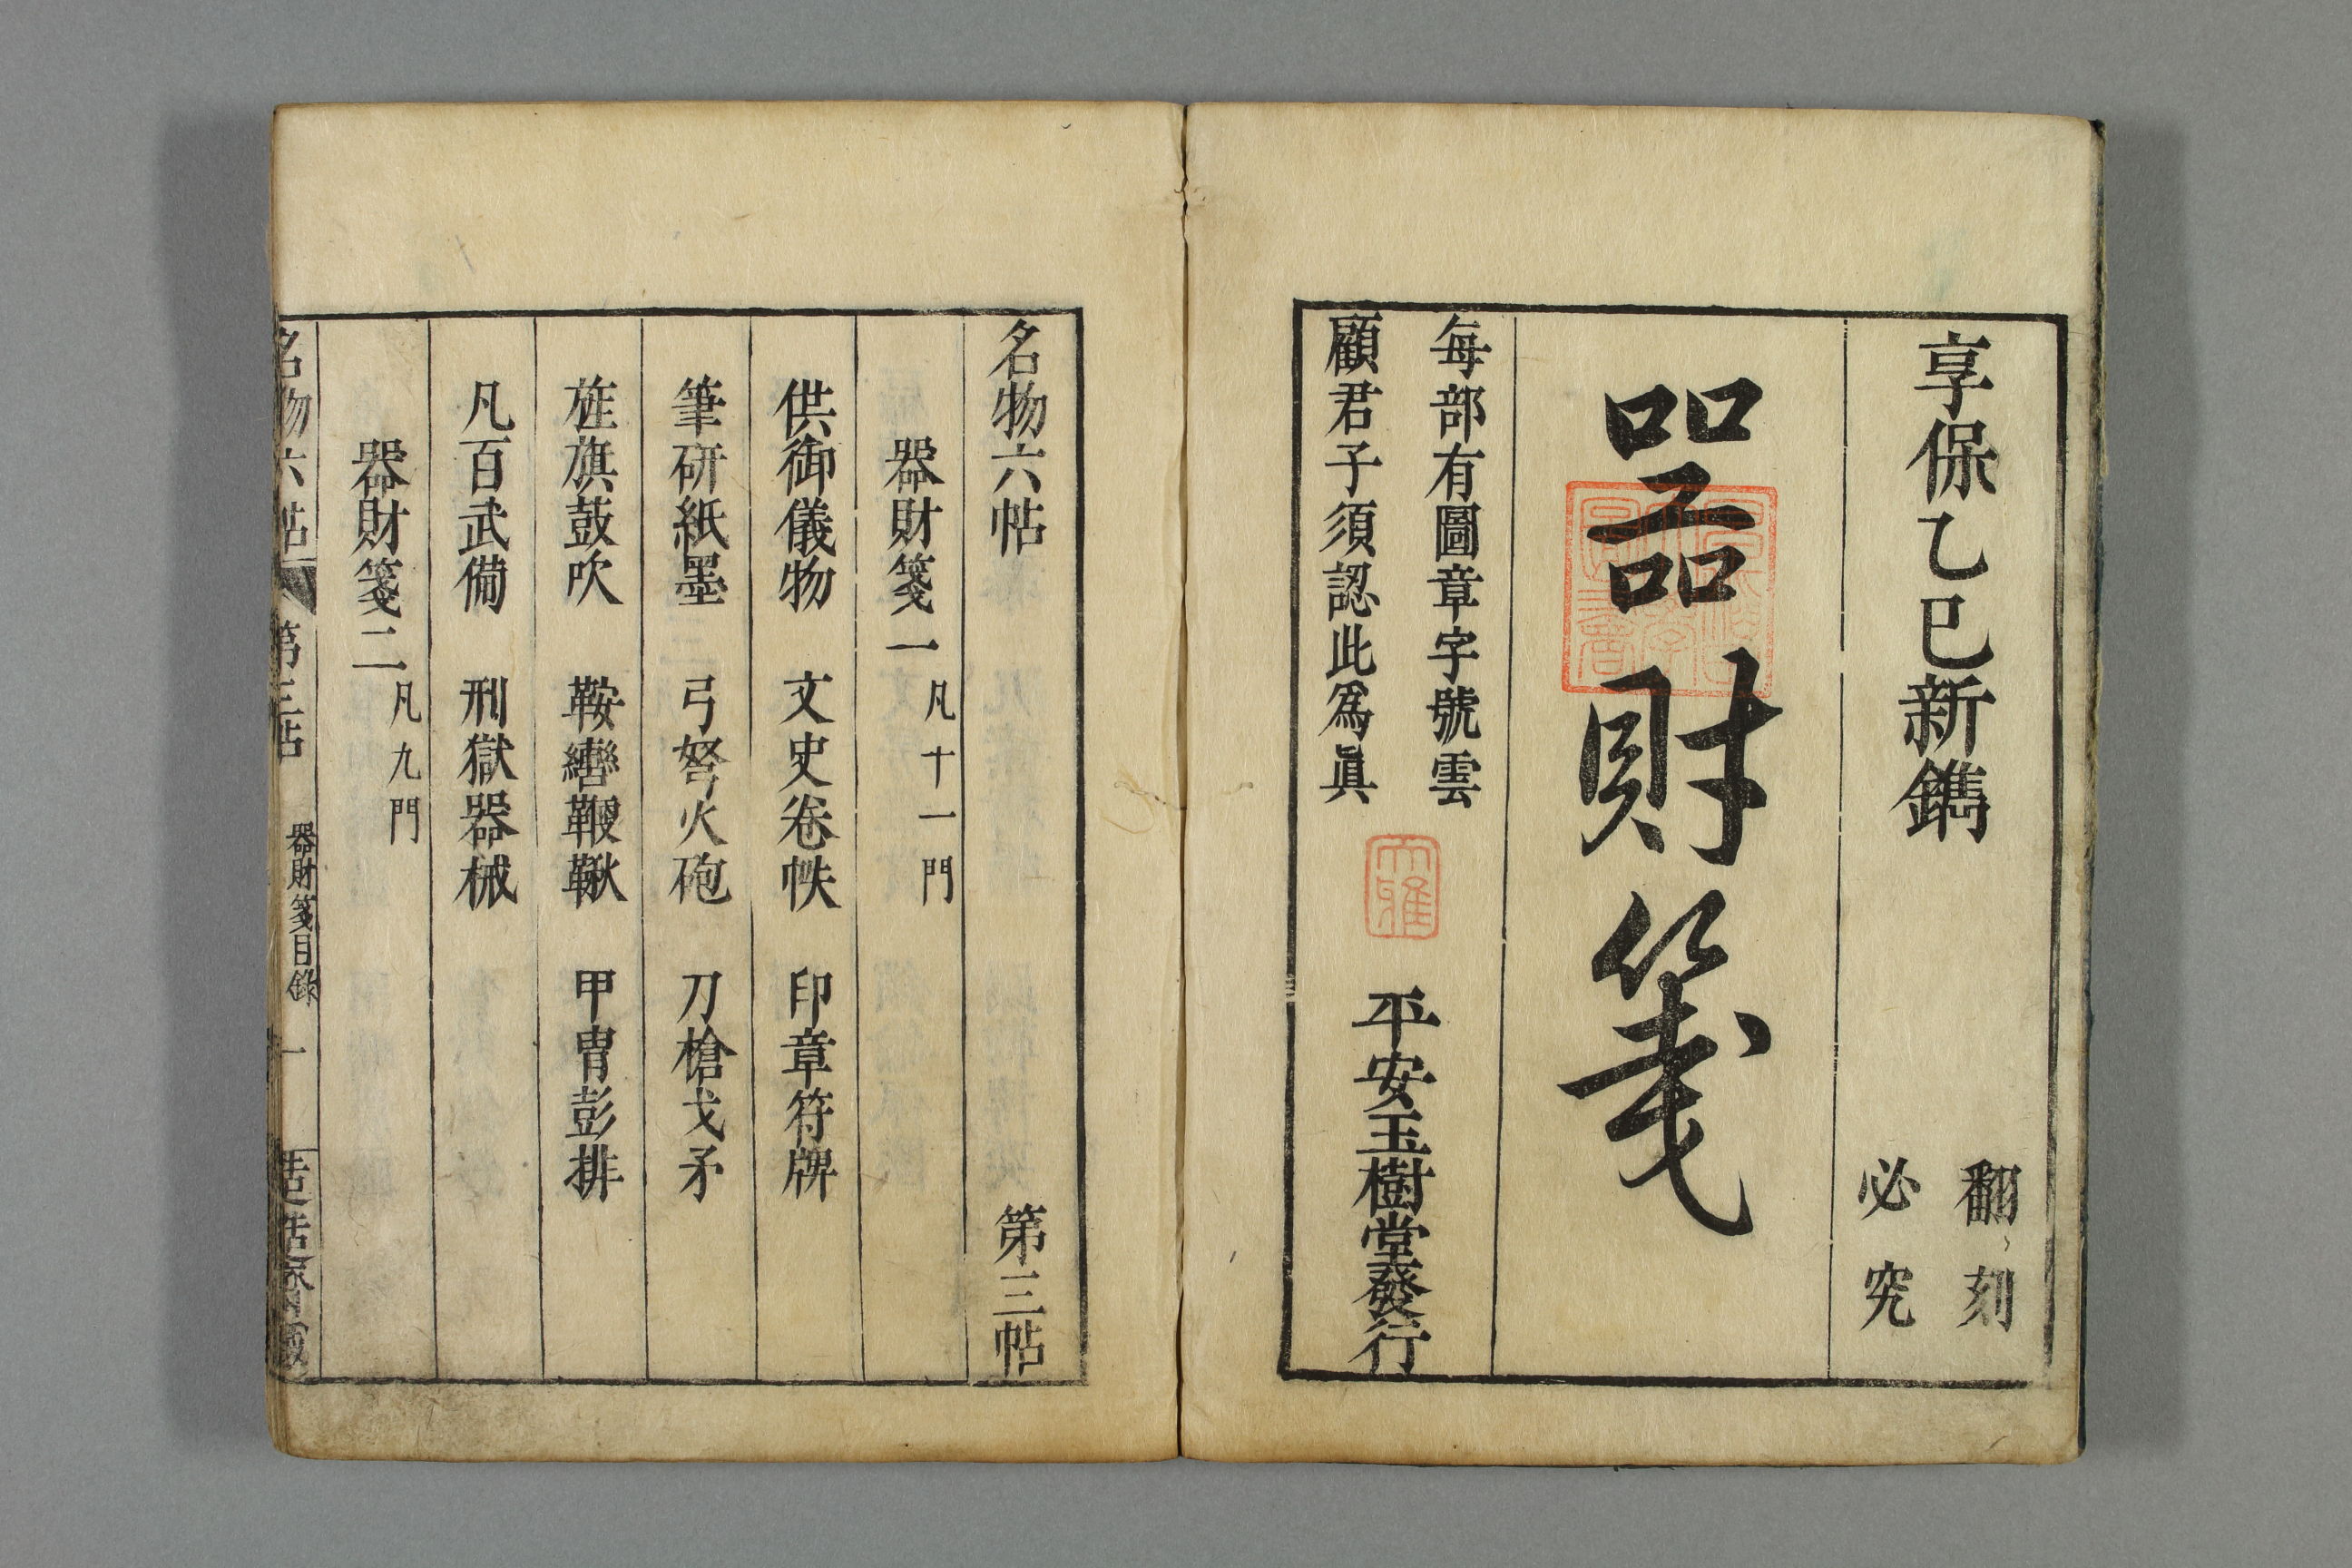 享保乙巳新鐫
翻刻
必究
器財箋
每部有圖章字號雲
顧君子須認此爲眞
平安玉樹堂發行
名物六帖 第三帖
器財箋一 凡十一門
供御儀物 文史卷帙 印章符牌
筆研紙墨 弓弩火砲 刀槍戈矛
旌旗鼓吹 鞍轡鞭鞦 甲冑彭排
凡百武備 刑獄器械
器財箋二 凡九門
名物六帖 第三帖 器財箋目錄 一